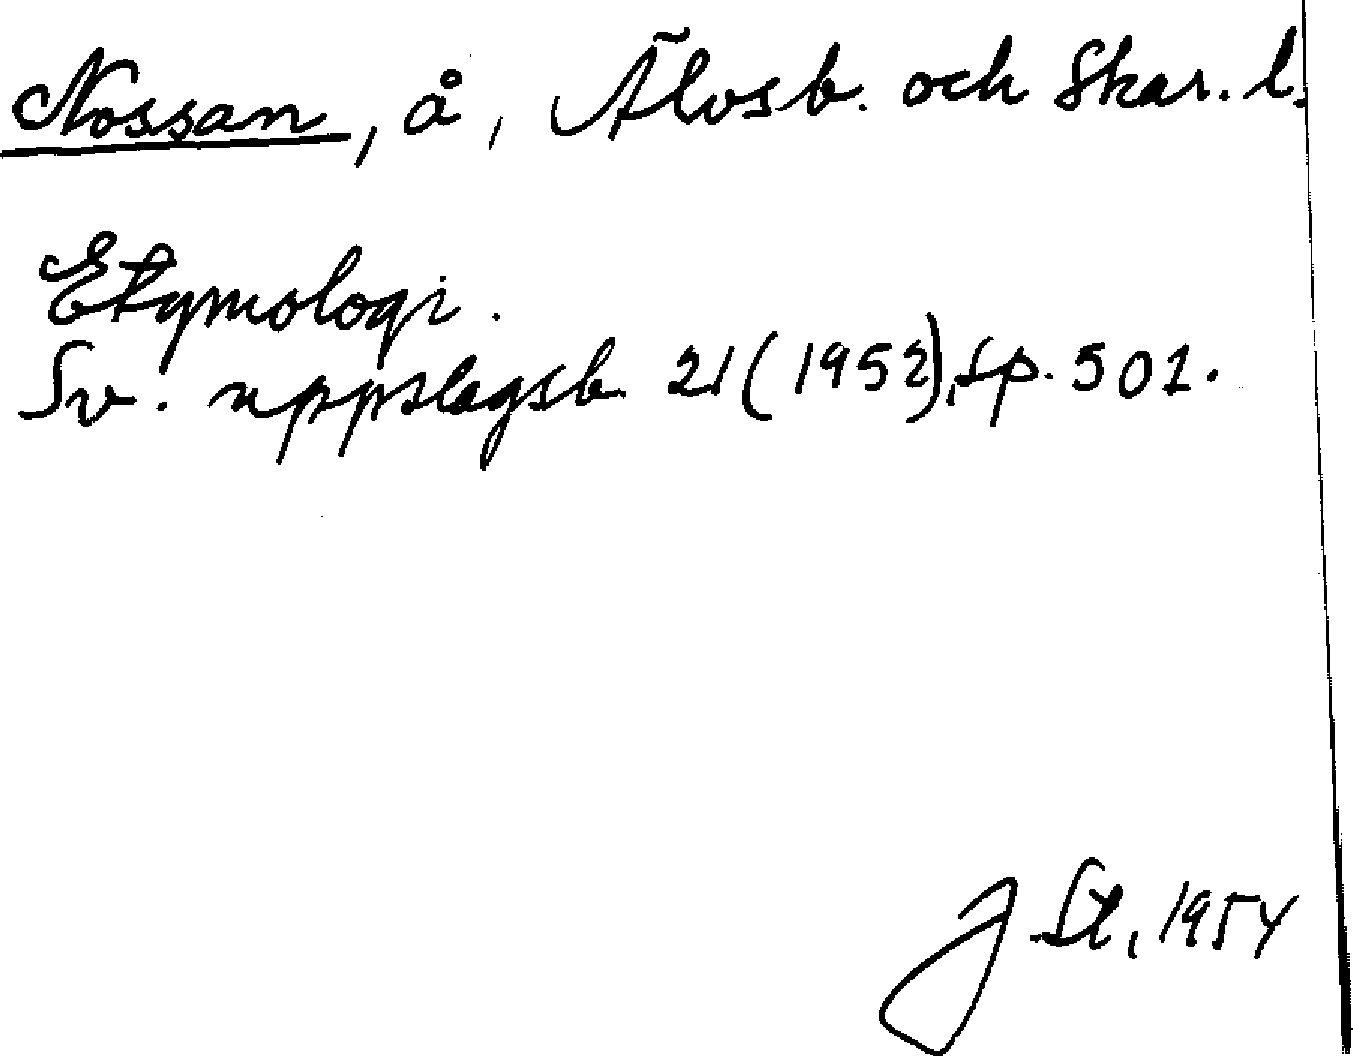 Nossan, å, Älvsb. och Skar. l.
Etymologi.
Sv. uppslagsb. 21 (1952), sp. 501.
J St, 1954